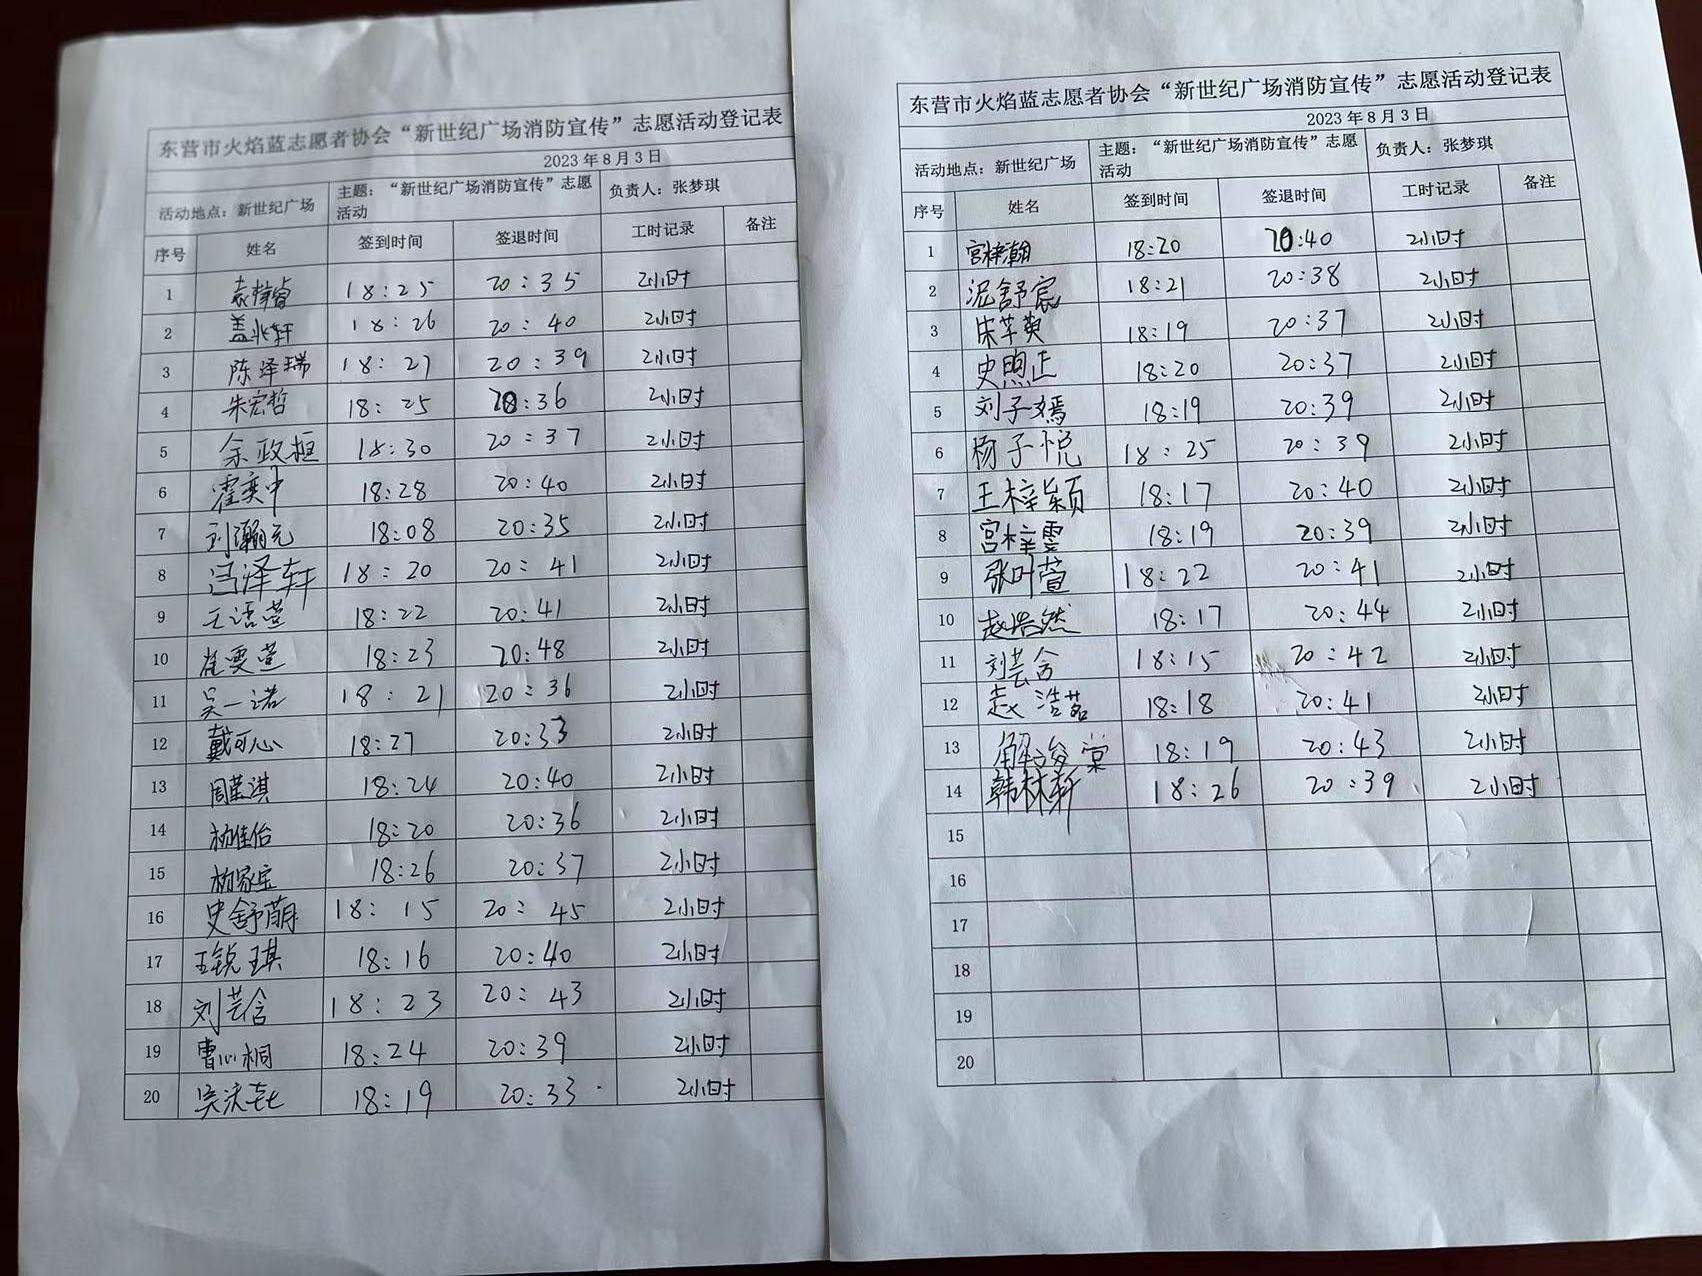 东营市火焰蓝志愿者协会“新世纪广场消防宣传”志愿活动登记表
2023年8月3日
活动地点：新世纪广场 主题：“新世纪广场消防宣传”志愿活动 负责人：张梦琪
序号 姓名 签到时间 签退时间 工时记录 备注
1 袁梓睿 18:25 20:35 2小时
2 盖兆轩 18:26 20:40 2小时
3 陈泽瑞 18:27 20:39 2小时
4 朱宏哲 18:25 20:36 2小时
5 余政桓 18:30 20:37 2小时
6 霍奕中 18:28 20:40 2小时
7 刘瀚元 18:08 20:35 2小时
8 冯泽轩 18:20 20:41 2小时
9 王语萱 18:22 20:41 2小时
10 崔雯萱 18:23 20:48 2小时
11 吴一诺 18:21 20:36 2小时
12 戴可心 18:27 20:33 2小时
13 周 淇 18:24 20:40 2小时
14 杨佳怡 18:20 20:36 2小时
15 杨家宝 18:26 20:37 2小时
16 史舒萌 18:15 20:45 2小时
17 王锐琪 18:16 20:40 2小时
18 刘芸含 18:23 20:43 2小时
19 曹心桐 18:24 20:39 2小时
20 18:19 20:33 2小时
东营市火焰蓝志愿者协会“新世纪广场消防宣传”志愿活动登记表
2023年8月3日
活动地点：新世纪广场 主题：“新世纪广场消防宣传”志愿活动 负责人：张梦琪
序号 姓名 签到时间 签退时间 工时记录 备注
1 宫梓瀚 18:20 20:40 2小时
2 泥舒宸 18:21 20:38 2小时
3 宋芊萸 18:19 20:37 2小时
4 史煦正 18:20 20:37 2小时
5 刘子嫣 18:19 20:39 2小时
6 杨子悦 18:25 20:39 2小时
7 王梓颖 18:17 20:40 2小时
8 宫梓雯 18:19 20:39 2小时
9 张叶萱 18:22 20:41 2小时
10 赵浩然 18:17 20:44 2小时
11 刘芸含 18:15 20:42 2小时
12 赵浩茗 18:18 20:41 2小时
13 解浚棠 18:19 20:43 2小时
14 韩林轩 18:26 20:39 2小时
15
16
17
18
19
20